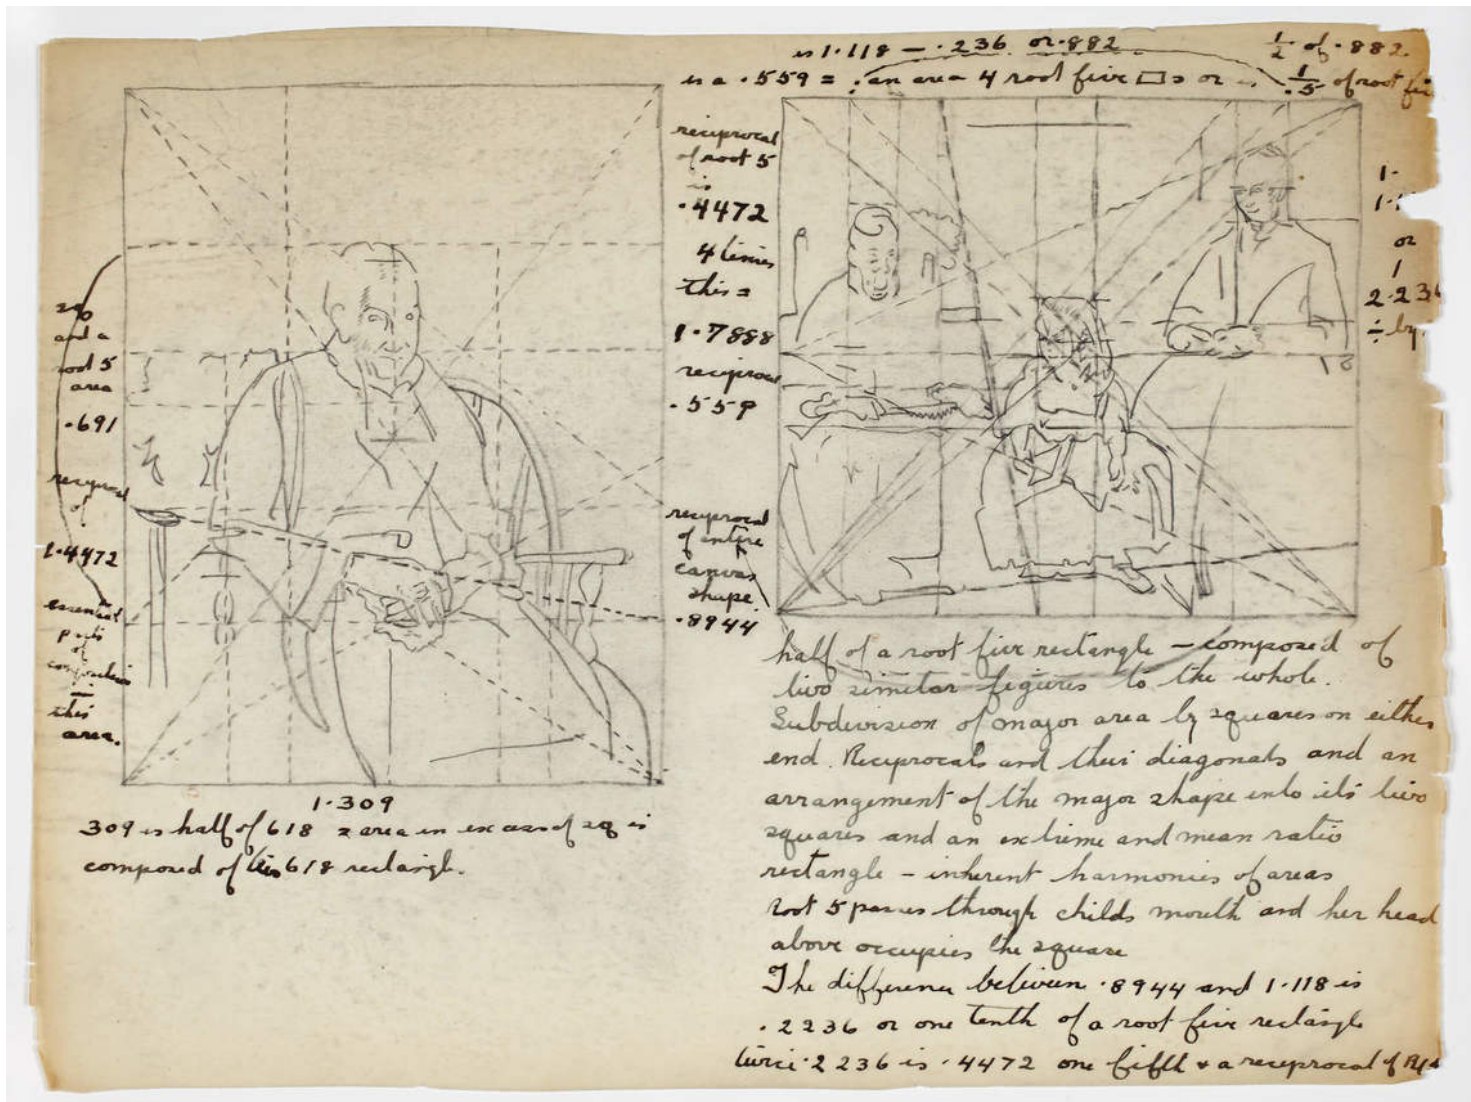 is 1.118 — .236 or .882
½ of .882.
is a .559 = : an area 4 root five ▭s or
1/.5 of root
reciprocal
of root 5
is
.4472
4 times
this =
1.7888
.559
reciprocal
of entire
canvas
shape
.8944
1.
or
1
2.236
÷ by
and a
root 5
area
.691
reciprocal
of
1.4472
essential
parts
of
this
area.
1.309
309 is half of 618 area in excess of sq is
composed of 618 rectangle.
half of a root five rectangle — composed of
two similar figures to the whole.
Subdivision of major area by squares on either
end. Reciprocals and their diagonals and an
arrangement of the major shape into its two
squares and an extreme and mean ratio
rectangle — inherent harmonies of areas
Root 5 passes through childs mouth and her head
above occupies the square
The difference between .8944 and 1.118 is
.2236 or one tenth of a root five rectangle
twice .2236 is .4472 one fifth + a reciprocal of